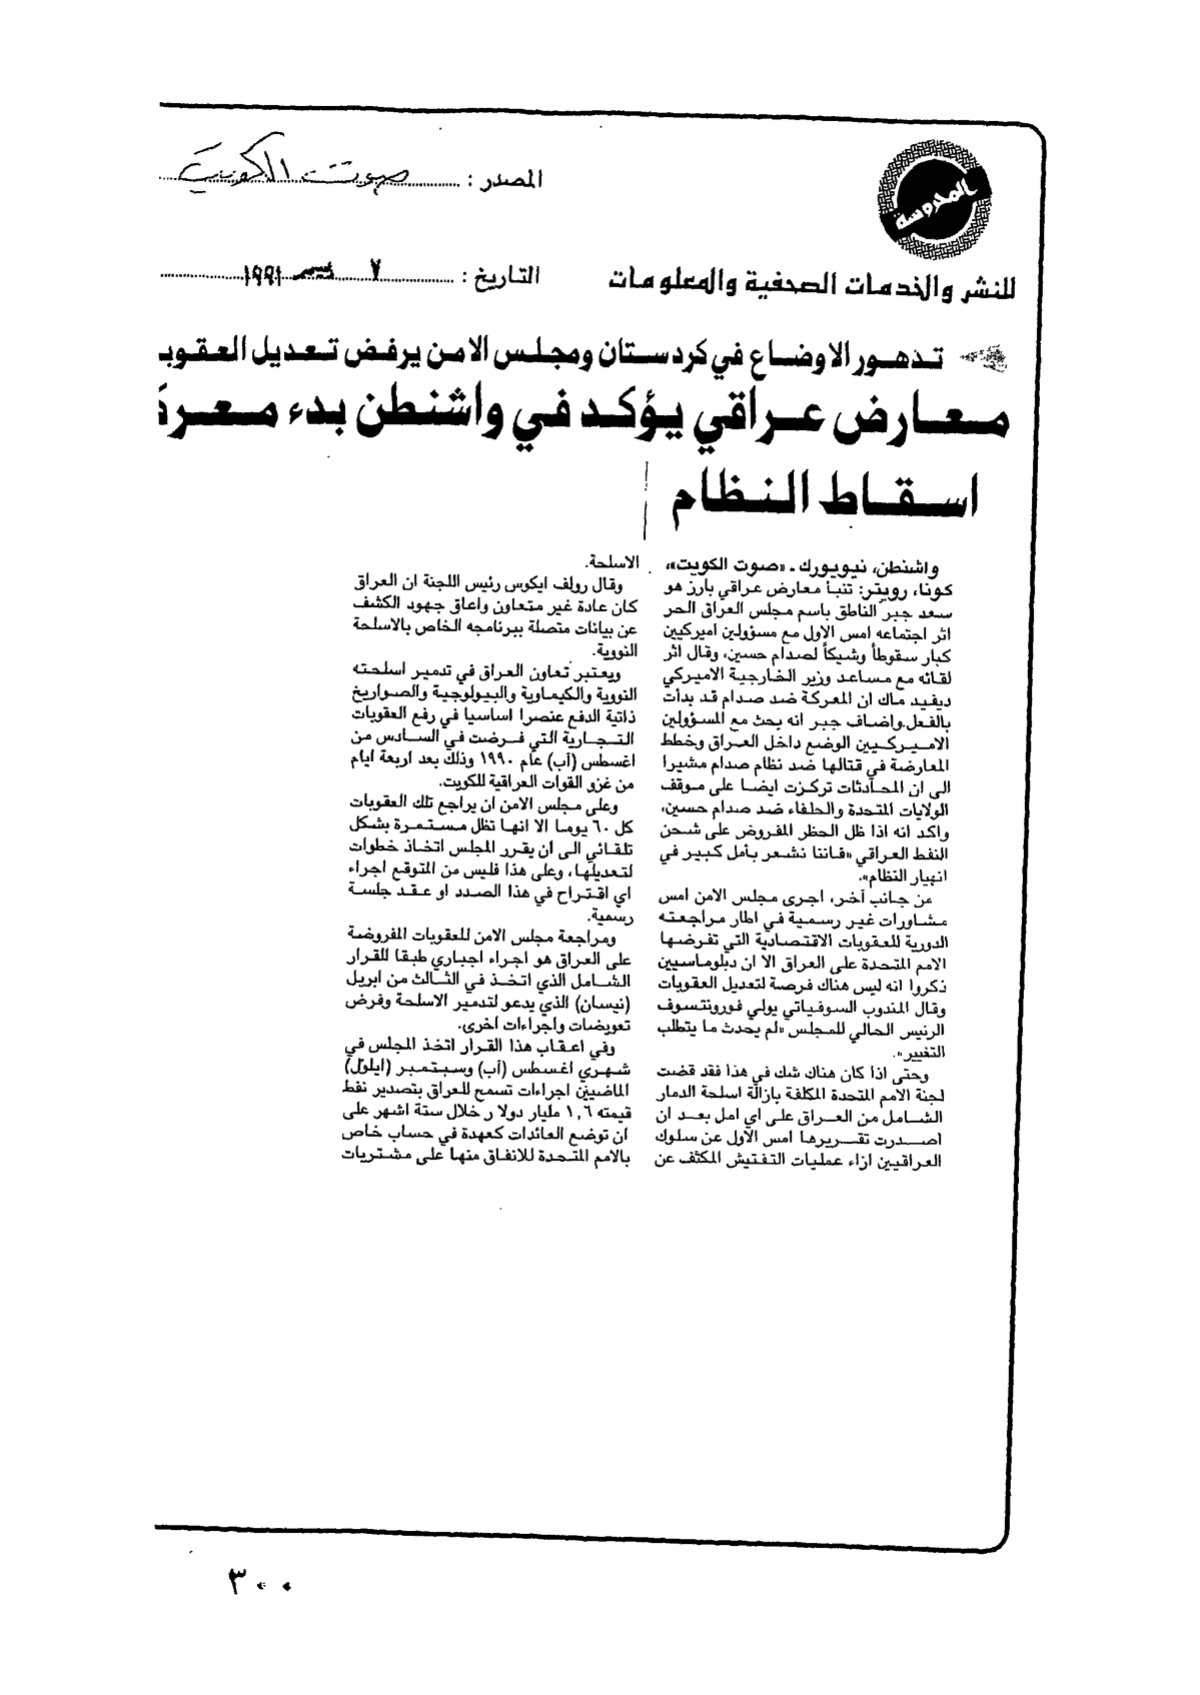 المحروسة
للنشر والخدمات الصحفية والمعلومات
المصدر : صوت الكويت
التاريخ : ٧ ديسمبر ١٩٩١
تدهور الاوضاع في كردستان ومجلس الامن يرفض تعديل العقوب
معارض عراقي يؤكد في واشنطن بدء معرك
اسقاط النظام
واشنطن، نيويورك ـ «صوت الكويت»،
كونا، رويتر: تنبأ معارض عراقي بارز هو
سعد جبر الناطق باسم مجلس العراق الحر
اثر اجتماعه امس الاول مع مسؤولين اميركيين
كبار سقوطاً وشيكاً لصدام حسين، وقال اثر
لقائه مع مساعد وزير الخارجية الاميركي
ديفيد ماك ان المعركة ضد صدام قد بدأت
بالفعل.واضاف جبر انه بحث مع المسؤولين
الاميركيين الوضع داخل العراق وخطط
المعارضة في قتالها ضد نظام صدام مشيرا
الى ان المحادثات تركزت ايضا على موقف
الولايات المتحدة والحلفاء ضد صدام حسين،
واكد انه اذا ظل الحظر المفروض على شحن
النفط العراقي «فاننا نشعر بأمل كبير في
انهيار النظام».
من جانب آخر، اجرى مجلس الامن امس
مشاورات غير رسمية في اطار مراجعته
الدورية للعقوبات الاقتصادية التي تفرضها
الامم المتحدة على العراق الا ان دبلوماسيين
ذكروا انه ليس هناك فرصة لتعديل العقوبات
وقال المندوب السوفياتي يولي فورونتسوف
الرئيس الحالي للمجلس «لم يحدث ما يتطلب
التغيير».
وحتى اذا كان هناك شك في هذا فقد قضت
لجنة الامم المتحدة المكلفة بازالة اسلحة الدمار
الشامل من العراق على اي امل بعد ان
اصدرت تقريرها امس الاول عن سلوك
العراقيين ازاء عمليات التفتيش المكثف عن
الاسلحة.
وقال رولف ايكوس رئيس اللجنة ان العراق
كان عادة غير متعاون واعاق جهود الكشف
عن بيانات متصلة ببرنامجه الخاص بالاسلحة
النووية.
ويعتبر تعاون العراق في تدمير اسلحته
النووية والكيماوية والبيولوجية والصواريخ
ذاتية الدفع عنصرا اساسيا في رفع العقوبات
التجارية التي فرضت في السادس من
اغسطس (آب) عام ١٩٩٠ وذلك بعد اربعة ايام
من غزو القوات العراقية للكويت.
وعلى مجلس الامن ان يراجع تلك العقوبات
كل ٦٠ يوما الا انها تظل مستمرة بشكل
تلقائي الى ان يقرر المجلس اتخاذ خطوات
لتعديلها، وعلى هذا فليس من المتوقع اجراء
اي اقتراح في هذا الصدد او عقد جلسة
رسمية.
ومراجعة مجلس الامن للعقوبات المفروضة
على العراق هو اجراء اجباري طبقا للقرار
الشامل الذي اتخذ في الثالث من ابريل
(نيسان) الذي يدعو لتدمير الاسلحة وفرض
تعويضات واجراءات اخرى.
وفي اعقاب هذا القرار اتخذ المجلس في
شهري اغسطس (آب) وسبتمبر (ايلول)
الماضيين اجراءات تسمح للعراق بتصدير نفط
قيمته ١,٦ مليار دولار خلال ستة اشهر على
ان توضع العائدات كعهدة في حساب خاص
بالامم المتحدة للانفاق منها على مشتريات
٣٠٠